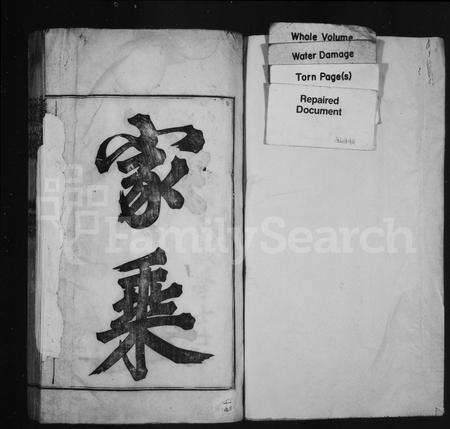 家乘
Whole Volume
Water Damage
Torn Page(s)
Repaired
Document
FamilySearch